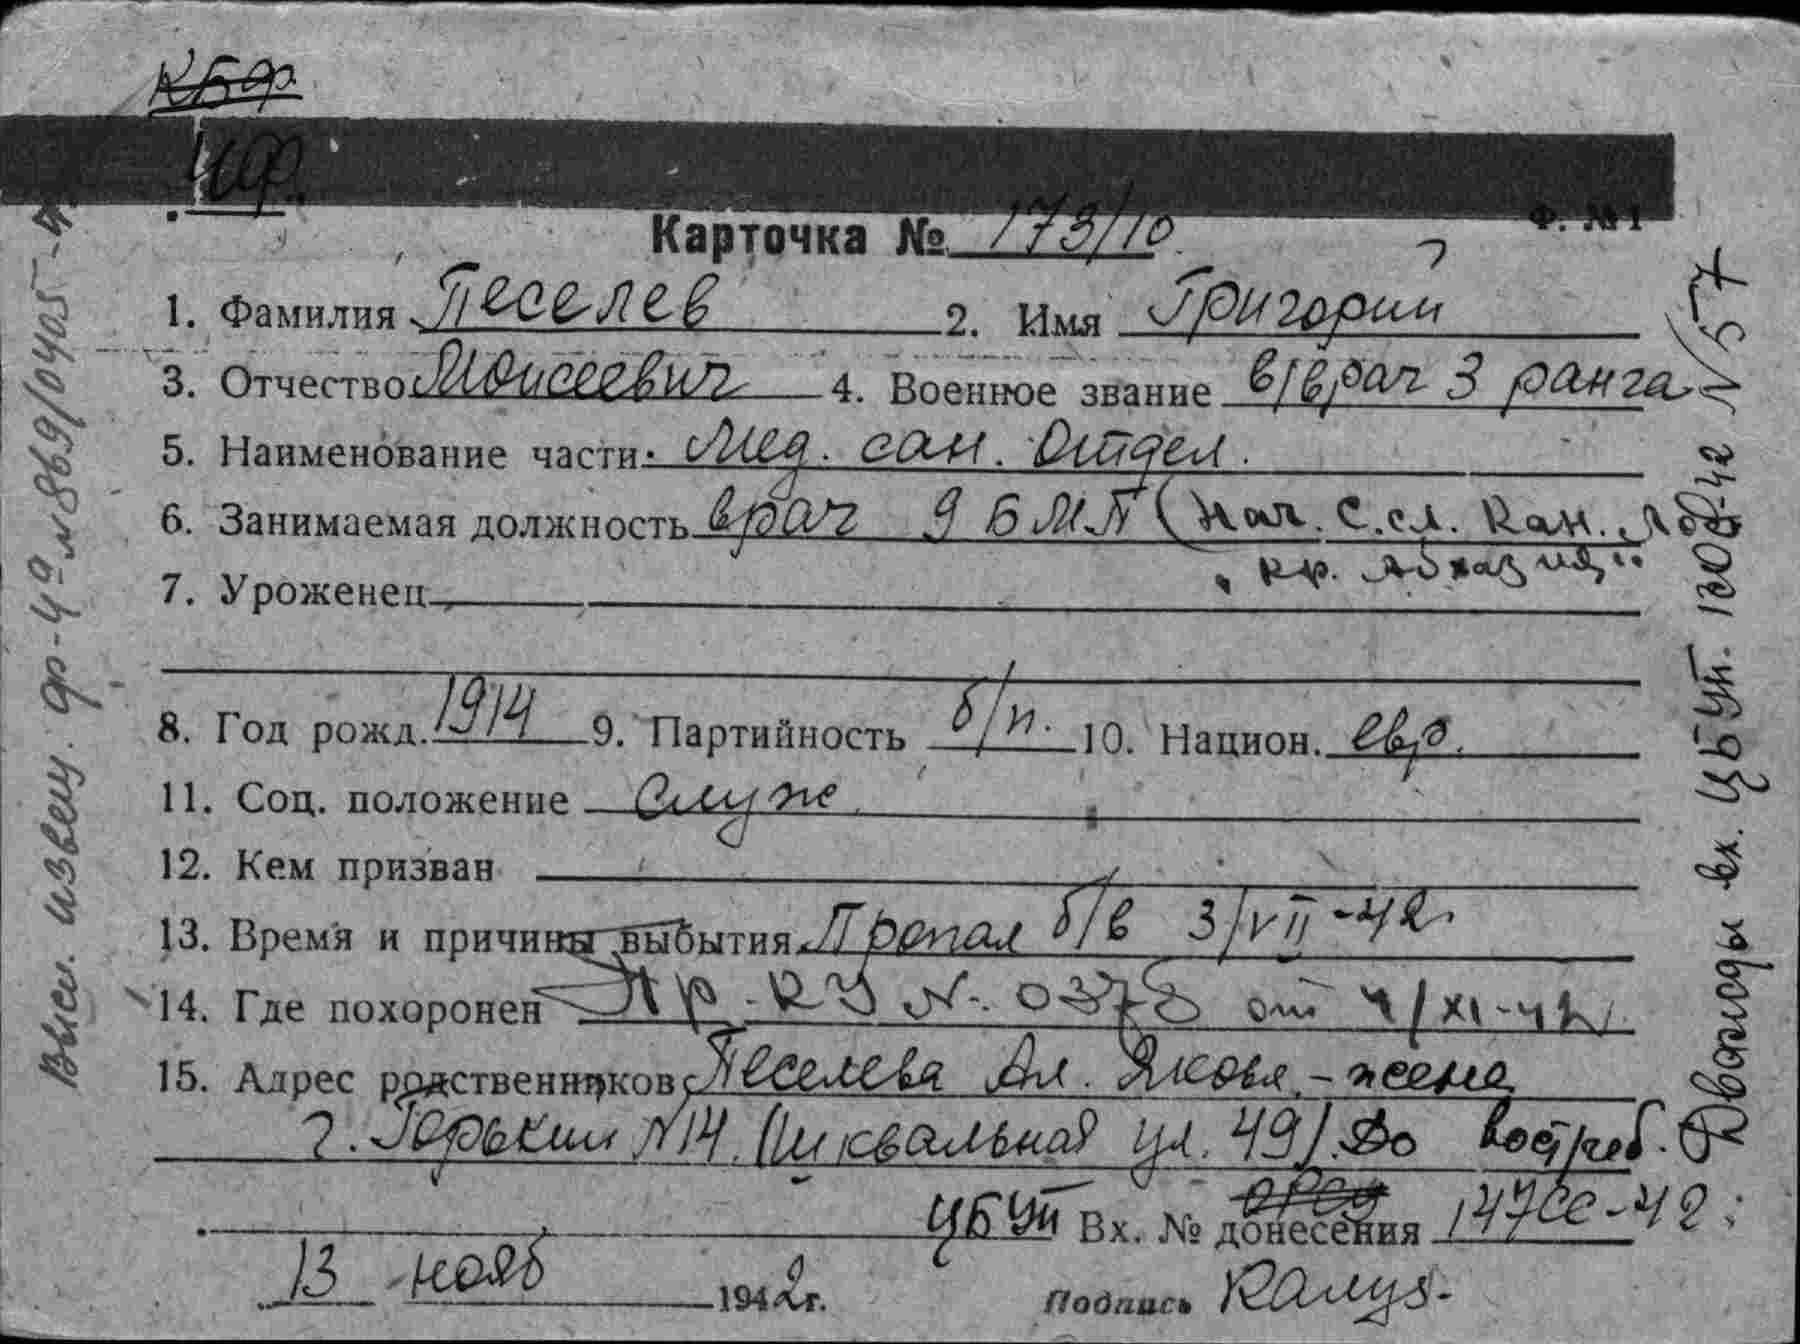 КБФ
ЧФ.
Карточка № 173/10
Ф. №1
1. Фамилия Песелев 2. Имя Григорий
3. Отчество Моисеевич 4. Военное звание в/врач 3 ранга
5. Наименование части Мед. сан. Отдел.
6. Занимаемая должность врач 9 БМП (Нач. С.сл. Кан. Лод.
"Кр. Абхазия"
7. Уроженец
8. Год рожд. 1914 9. Партийность б/п. 10. Национ. евр.
11. Соц. положение служ
12. Кем призван
13. Время и причины выбытия Пропал б/в 3/VII-42
14. Где похоронен Пр. КУ №. 0378 от 4/XI-42
15. Адрес родственников Песелева Ал. Яковл. - жена
г. Горький №14. Шквальная ул. 49). До востреб.
ЦБУП Вх. № донесения 147сс-42
13 нояб 1942г. Подпись
Высл. извещ. ф-4а №8869/0405-
Дважды вх. ЦБУП. 130сс-42 №57